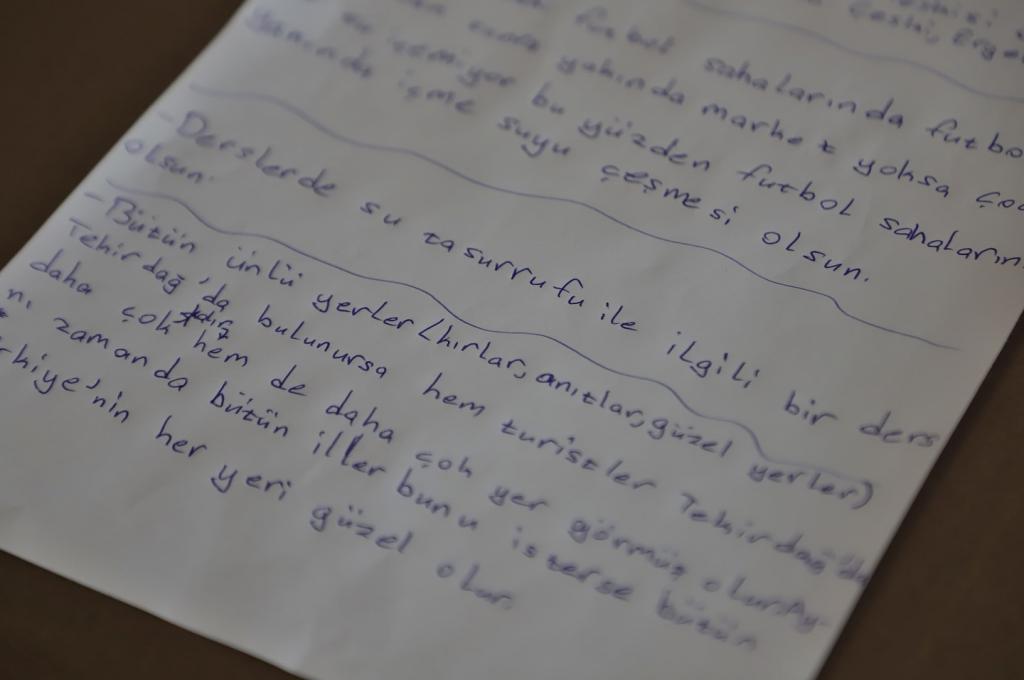 futbol sahalarında futbo
yakında market yoksa ço
su içemiyor bu yüzden futbol sahaların
yanında içme suyu çeşmesi olsun.
- Derslerde su tasurrufu ile ilgili bir ders
olsun.
- Bütün ünlü yerler (hırlar, anıtlar, güzel yerler)
Tekirdağ'da bulunursa hem turistler Tekirdağ'da
daha çok hem de daha çok yer görmüş olur. Ay-
nı zamanda bütün iller bunu isterse bütün
rkiye'nin her yeri güzel olur.